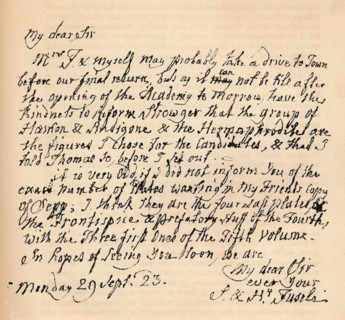 My dear Sir
Mrs F. & myself may probably take a drive to Town
before our final return, but as it can not be till after
the opening of the Academy to Morrow, have the
Kindness to inform Strowger that the group of
Hæmon & Antigone & the Hermaphrodite are
the figures I chose for the Candidates, & that I
told Thomas so, before I set out.
it is very odd if i did not inform You of the
exact number of Plates wanting in my Friends Copy
of : I think they are the four Last plates of
the Frontispice & prefatory stuff of the Fourth,
with the Three first Ones of the Fifth Volume.
In hopes of seeing You Soon we are
My dear Sir
ever Your
S. & Hy Fuseli
Monday 29 Sept. 23.